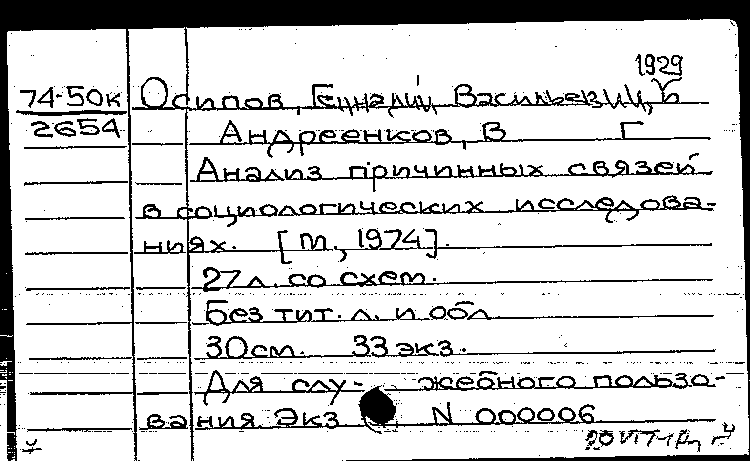 1929
74-50к Осипов, Геннадий Васильевич, и
2654 Андреенков, В Г
Анализ причинных связей
в социологических исследова-
ниях. [М., 1974].
27 л. со схем.
Без тит. л. и обл
30 см. 33 экз.
Для слу- жебного пользо-
вания. Экз N 000006